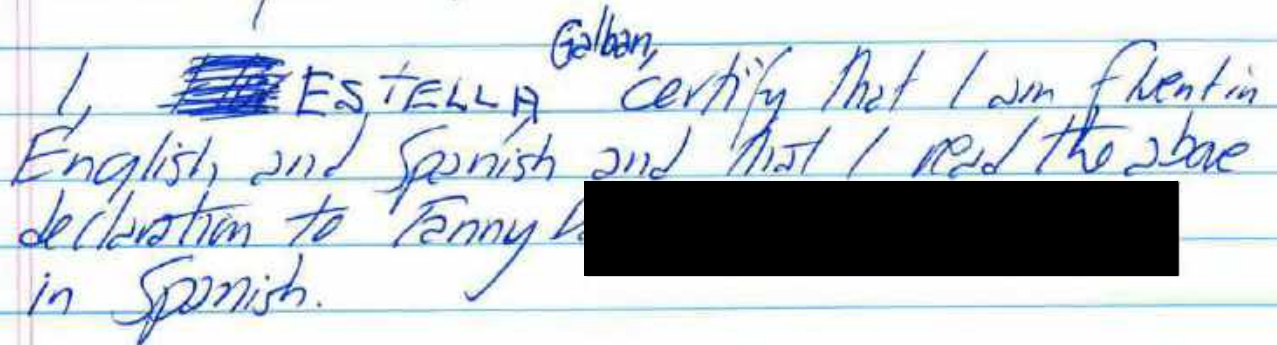 I, ESTELLA Galban, certify that I am fluent in
English and Spanish and that I read the above
declaration to Fanny
in Spanish.